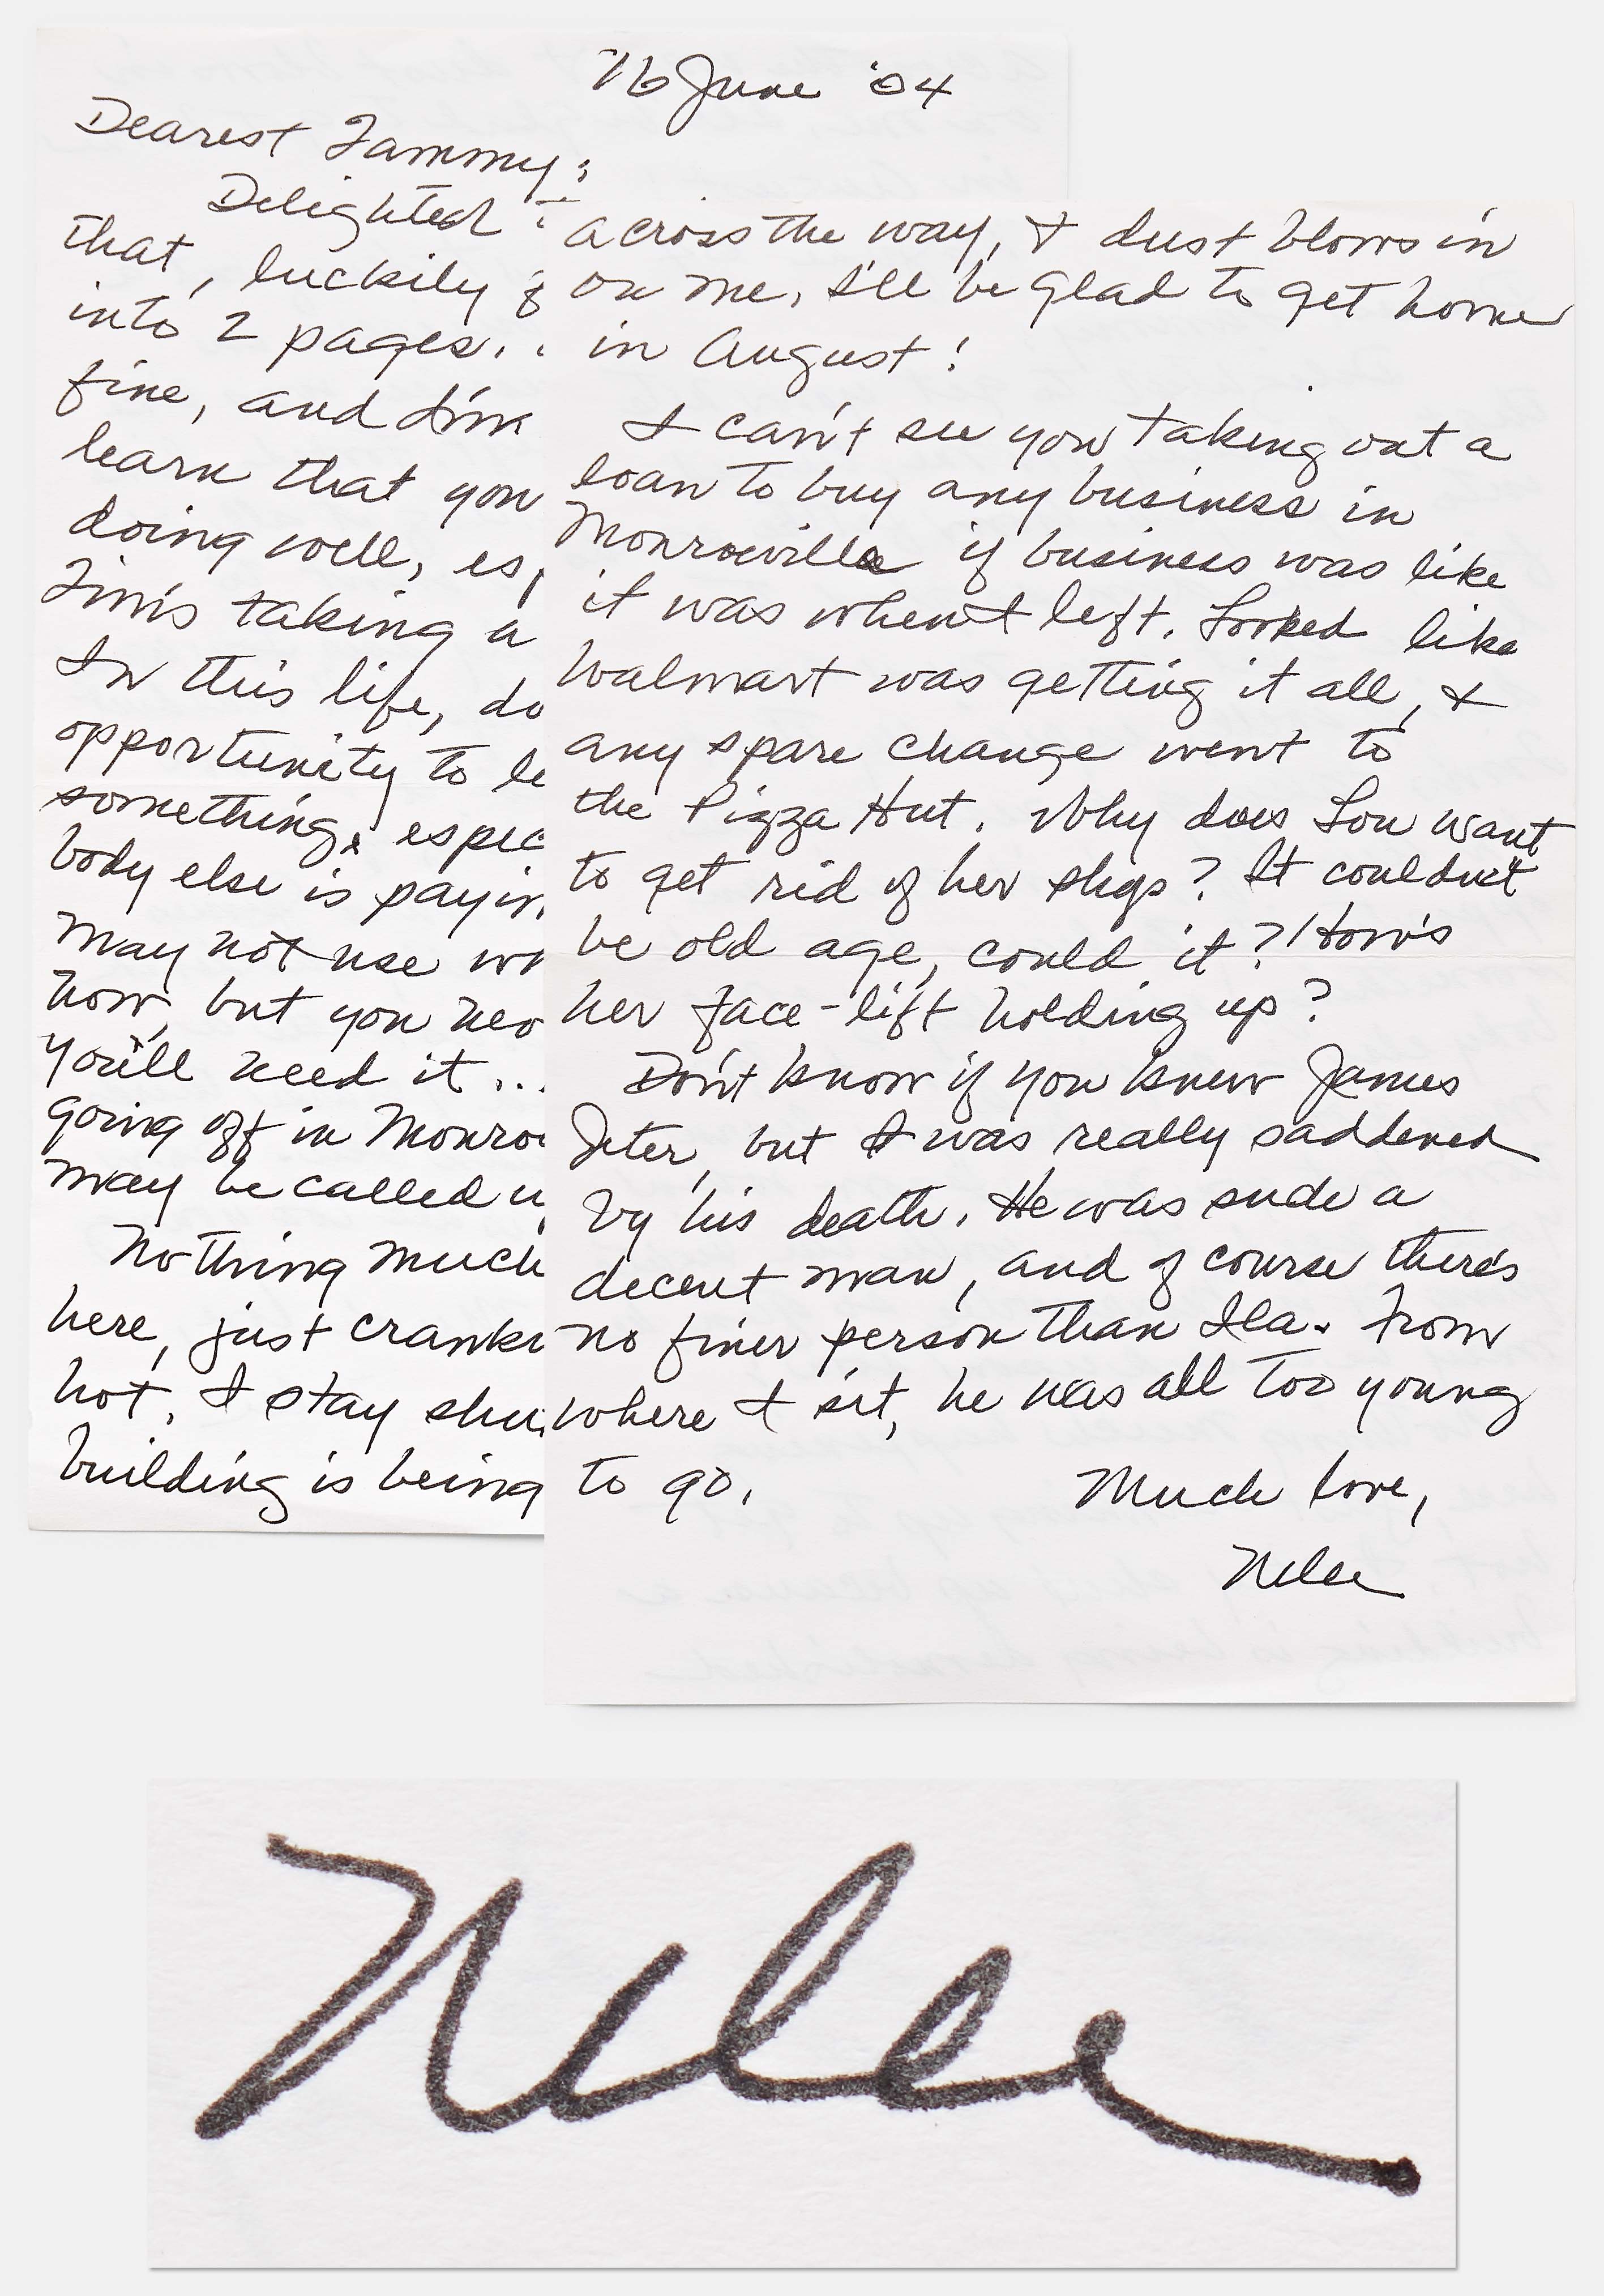 16 June '04
Dearest Tammy:
Delighted
that, luckily
into 2 pages..
fine, and
learn that you
doing well, esp
Tim's taking a
In this life, do
opportunity to le
something, espec
body else is payin
may not use wh
now, but you nev
you'll need it...
going off in Monroe
may be called u
Nothing much
here, just cranki
hot. I stay shu
building is being
across the way, & dust blows in
on me. I'll be glad to get home
in August!
I can't see you taking out a
loan to buy any business in
Monroeville if business was like
it was when I left. Looked like
Walmart was getting it all, &
any spare change went to
the Pizza Hut. Why does Lou want
to get rid of her shops? It couldn't
be old age, could it? How's
her face-lift holding up?
Don't know if you knew James
Jeter, but I was really saddened
by his death. He was such a
decent man, and of course there's
no finer person than Ila. From
where I sit, he was all too young
to go.
Much love,
Nelle
Nelle